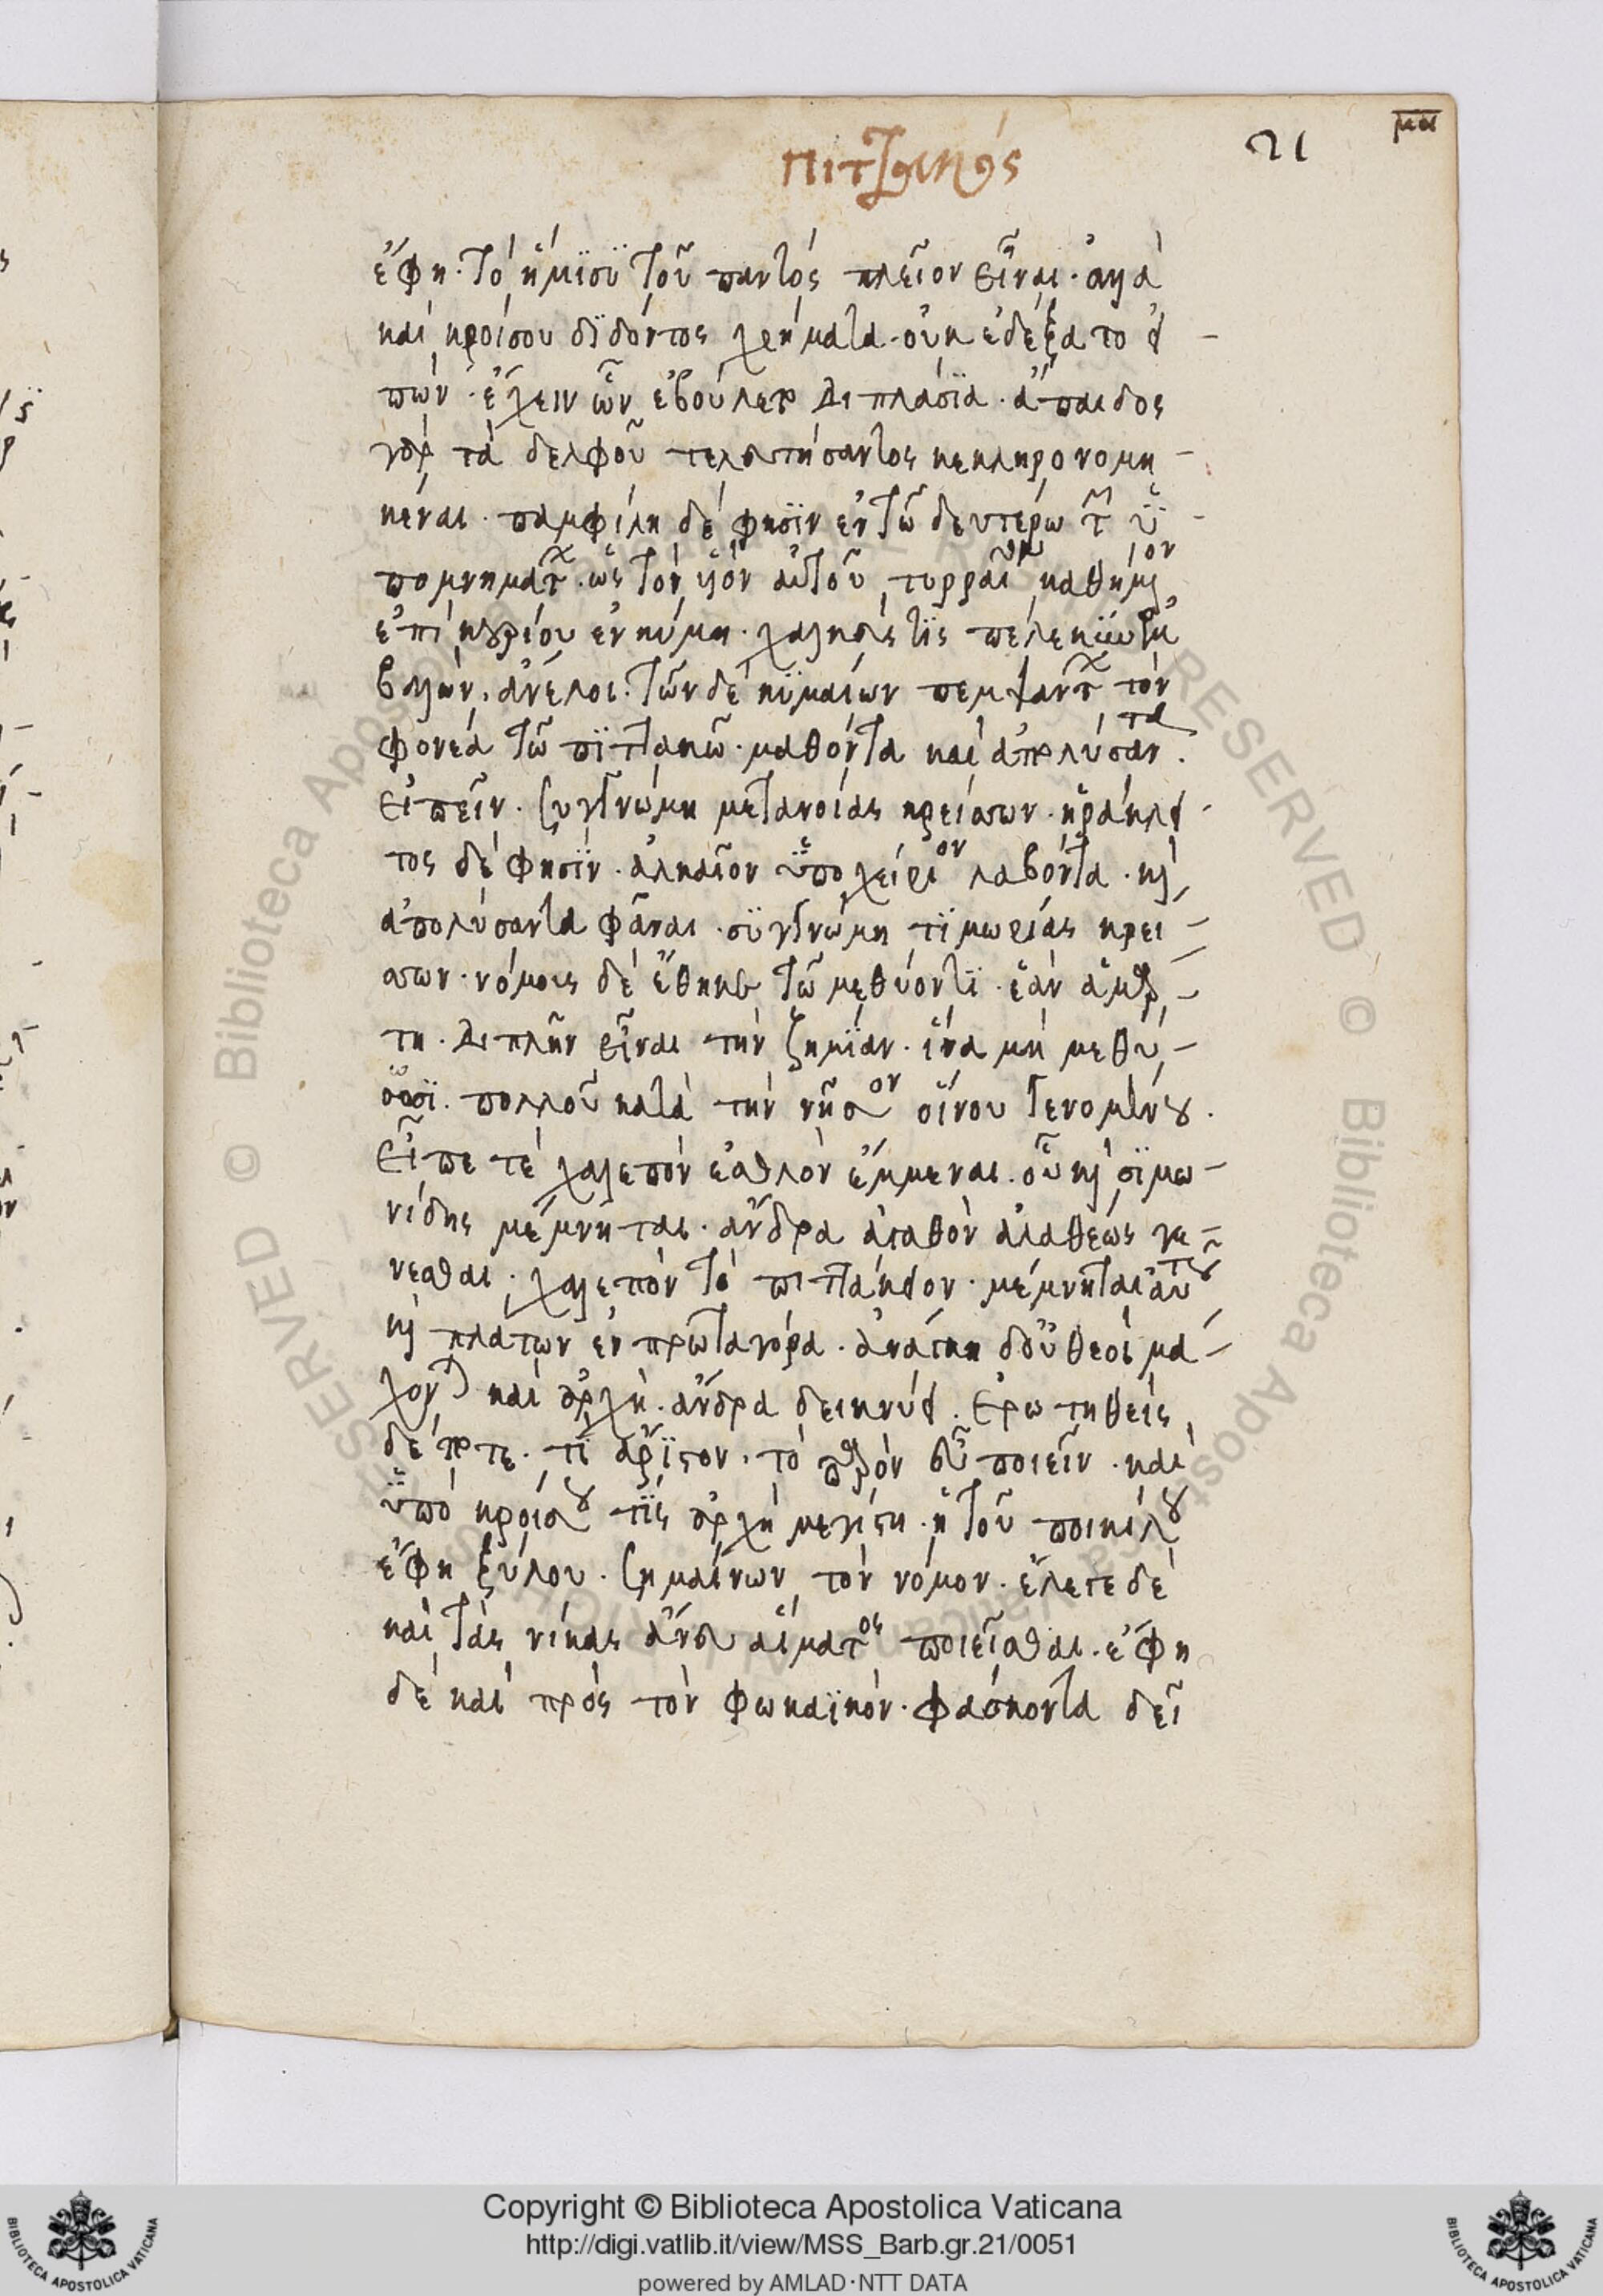 21
μα
πιττακός
ἔφη· τὸ ἥμϊσϋ τοῦ παντὸς πλεῖον εἶναι· ἀλλὰ
καὶ κροίσου δϊδόντος χρήματα· οὐκ ἐδέξατο εἰ-
πών· ἔχειν ὧν ἐβούλετο διπλάσϊα· ἄπαιδος
γὰρ τἀδελφοῦ τελευτήσαντος κεκληρονομη-
κέναι· παμφίλη δέ φησϊν ἐν τῶ δευτέρω τῶν ὑ-
πομνημάτων· ὡς τὸν υἱὸν αὐτοῦ τυρραῖον καθήμενον
ἐπὶ κουρείου ἐν κύμη· χαλκεύς τϊς πέλεκυν
βαλὼν, ἀνέλοι· τῶν δὲ κϋμαίων πεμψάντων τὸν
φονέα τῶ πϊττακῶ· μαθόντα καὶ ἀπολύσαντα·
εἰπεῖν· συγγνώμη μετανοίας κρείσσων· ἡράκλει-
τος δέ φησϊν· ἀλκαῖον ὑποχείριον λαβόντα· καὶ
ἀπολύσαντα φάναι· σϋγγνώμη τϊμωρίας κρεί-
σσων· νόμους δὲ ἔθηκε τῶ μεθύοντϊ· ἐὰν ἁμάρ-
τη· διπλῆν εἶναι τὴν ζημίαν· ἵνα μὴ μεθύ-
ωσϊ· πολλοῦ κατὰ τὴν νῆσον οἴνου γενομένου·
εἶπέ τε χαλεπὸν ἐσθλὸν ἔμμεναι· οὗ καὶ σϊμω-
νίδης μέμνηται· ἄνδρα ἀγαθὸν ἀλαθέως γε-
νέσθαι· χαλεπὸν τὸ πιττάκειον· μέμνηται αὐτοῦ
καὶ πλάτων ἐν πρωταγόρα· ἀνάγκη δ' οὐ θεοὶ μά-
χονται καὶ ἀρχὴ· ἄνδρα δεικνύει· ἐρωτηθείς
δέ ποτε· τί ἄρϊστον· τὸ παρὸν εὖ ποιεῖν· καὶ
ὑπὸ κροίσου τϊς ἀρχὴ μεγίστη· ἡ τοῦ ποικίλου
ἔφη ξύλου· σημαίνων τὸν νόμον· ἔλεγε δὲ
καὶ τὰς νίκας ἄνευ αἵματος ποιεῖσθαι· ἔφη
δὲ καὶ πρὸς τὸν φωκαϊκὸν· φάσκοντα δεῖ
Copyright © Biblioteca Apostolica Vaticana
http://digi.vatlib.it/view/MSS_Barb.gr.21/0051
powered by AMLAD·NTT DATA